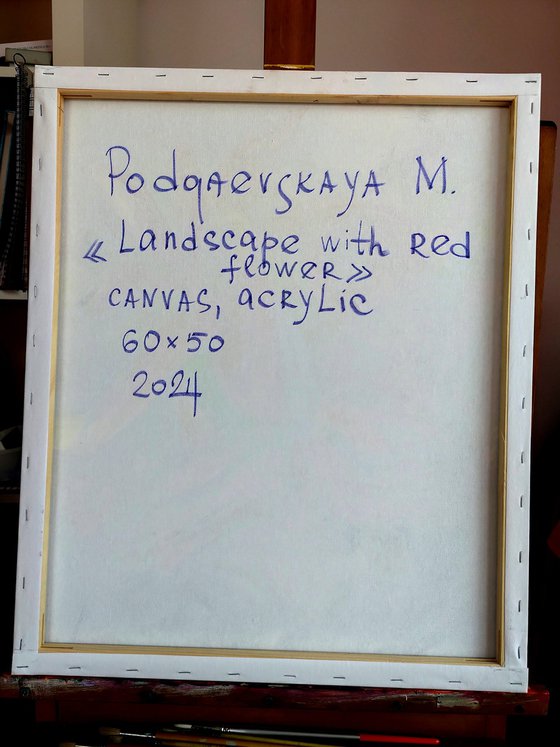 Podgaevskaya M.
« Landscape with Red
flower»
canvas, acrylic
60×50
2024